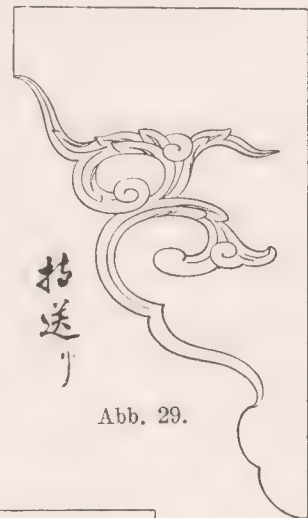 持送り
Abb. 29.